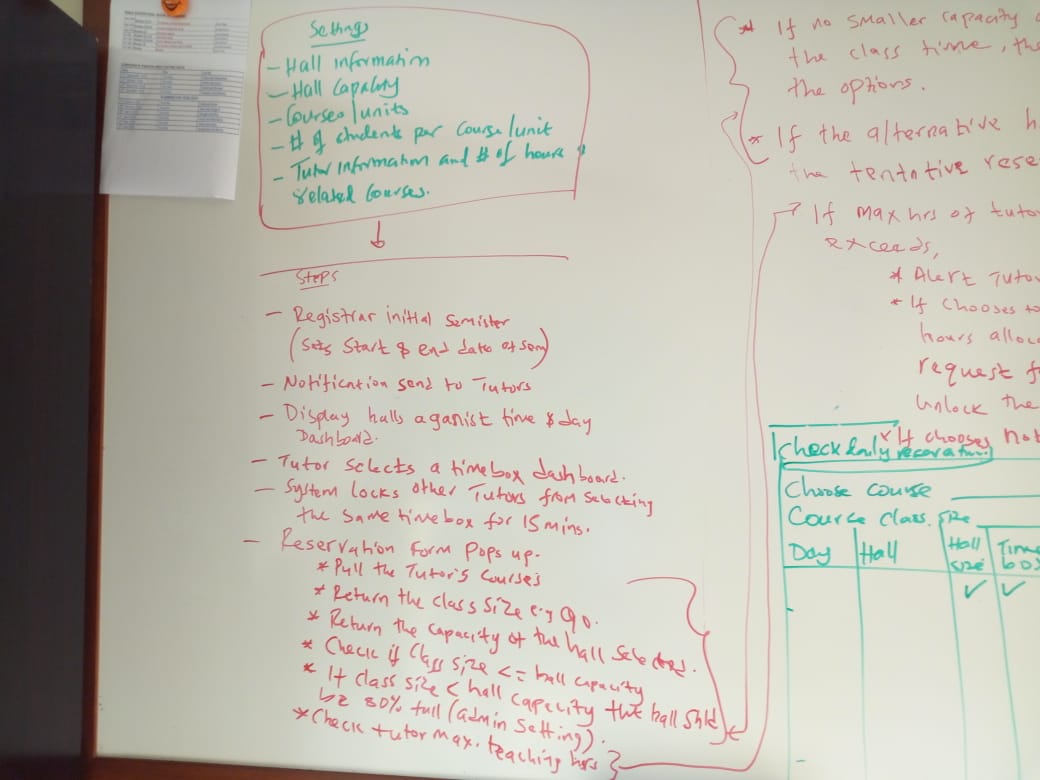 Settings
- Hall Information
- Hall Capacity
- Courses/units
- # of students per course/unit
- Tutor Information and # of hours &
related courses.
Steps
- Registrar initial Semister
(Sets Start & end date of sem)
- Notification send to Tutors
- Display halls aganist time & day
Dashboard.
- Tutor selects a timebox dashboard.
- System locks other Tutors from Selecting
the same timebox for 15 mins.
- Reservation Form Pops up.
* Pull the Tutor's Courses
* Return the class size e.g 90.
* Return the capacity of the hall selected.
* Check if Class size <= hall capacity
* If class size < hall capacity the hall shld
be 80% full (admin Setting).
* Check tutor max. teaching hrs
* If no smaller capacity
the class time, the
the options.
* If the alternative h
the tentative rese
If max hrs of tuto
exceeds,
* Alert Tuto
* If chooses to
hours alloc
request f
Unlock the
* If chooses not
Check daily
Choose course
Course Class Size
Day Hall Hall size Time